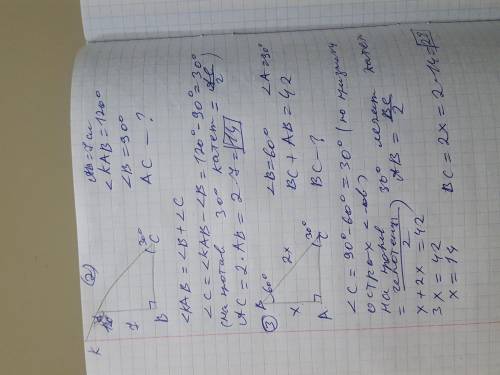 ②
AB = 7 см
∠KAB = 120°
∠B = 90°
AC — ?
K
7
B
30°
C
∠KAB = ∠B + ∠C
∠C = ∠KAB - ∠B = 120° - 90° = 30°
(на против 30° катет =
AC = 2 · AB = 2 · 7 = 14
③
B 60°
2x
x
A
30°
C
∠B = 60° ∠A = 90°
BC + AB = 42
BC — ?
∠C = 90° - 60° = 30° (по
острых
на против 30° лежит катет
= гипотенузы / 2) AB = BC/2
x + 2x = 42
3x = 42
x = 14
BC = 2x = 2 · 14 =